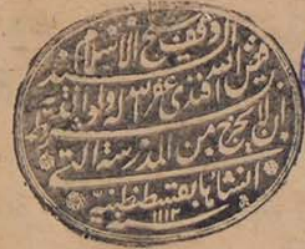 وقف شيخ الاسلام السيد
فيض الله افندى غفر الله له ولوالديه
بشرط ان لا يخرج من المدرسة التى
انشاها بقسطنطنية
سنه ١١١٣